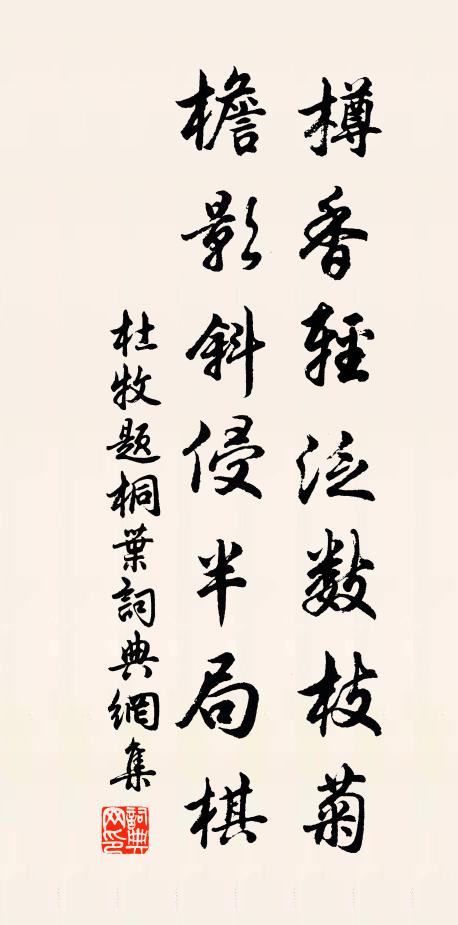 樽香輕泛數枝菊
檐影斜侵半局棋
杜牧題桐葉詞典網集
詞典網印